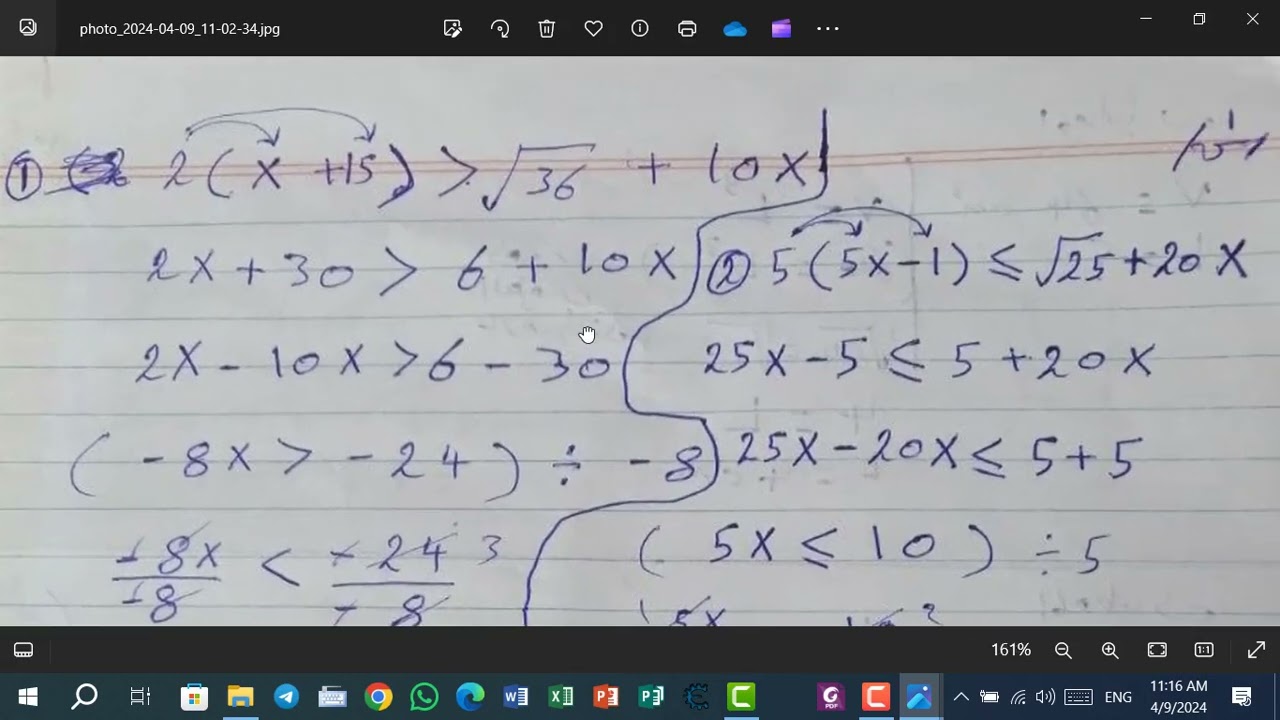 photo_2024-04-09_11-02-34.jpg
① 2(x +15) > √36 + 10x
2x + 30 > 6 + 10x
2x - 10x > 6 - 30
( -8x > -24 ) ÷ -8
-8x/-8 < -24/-8 3
② 5(5x-1) ≤ √25 + 20x
25x - 5 ≤ 5 + 20x
25x - 20x ≤ 5 + 5
( 5x ≤ 10 ) ÷ 5
5x
161%
ENG
11:16 AM
4/9/2024